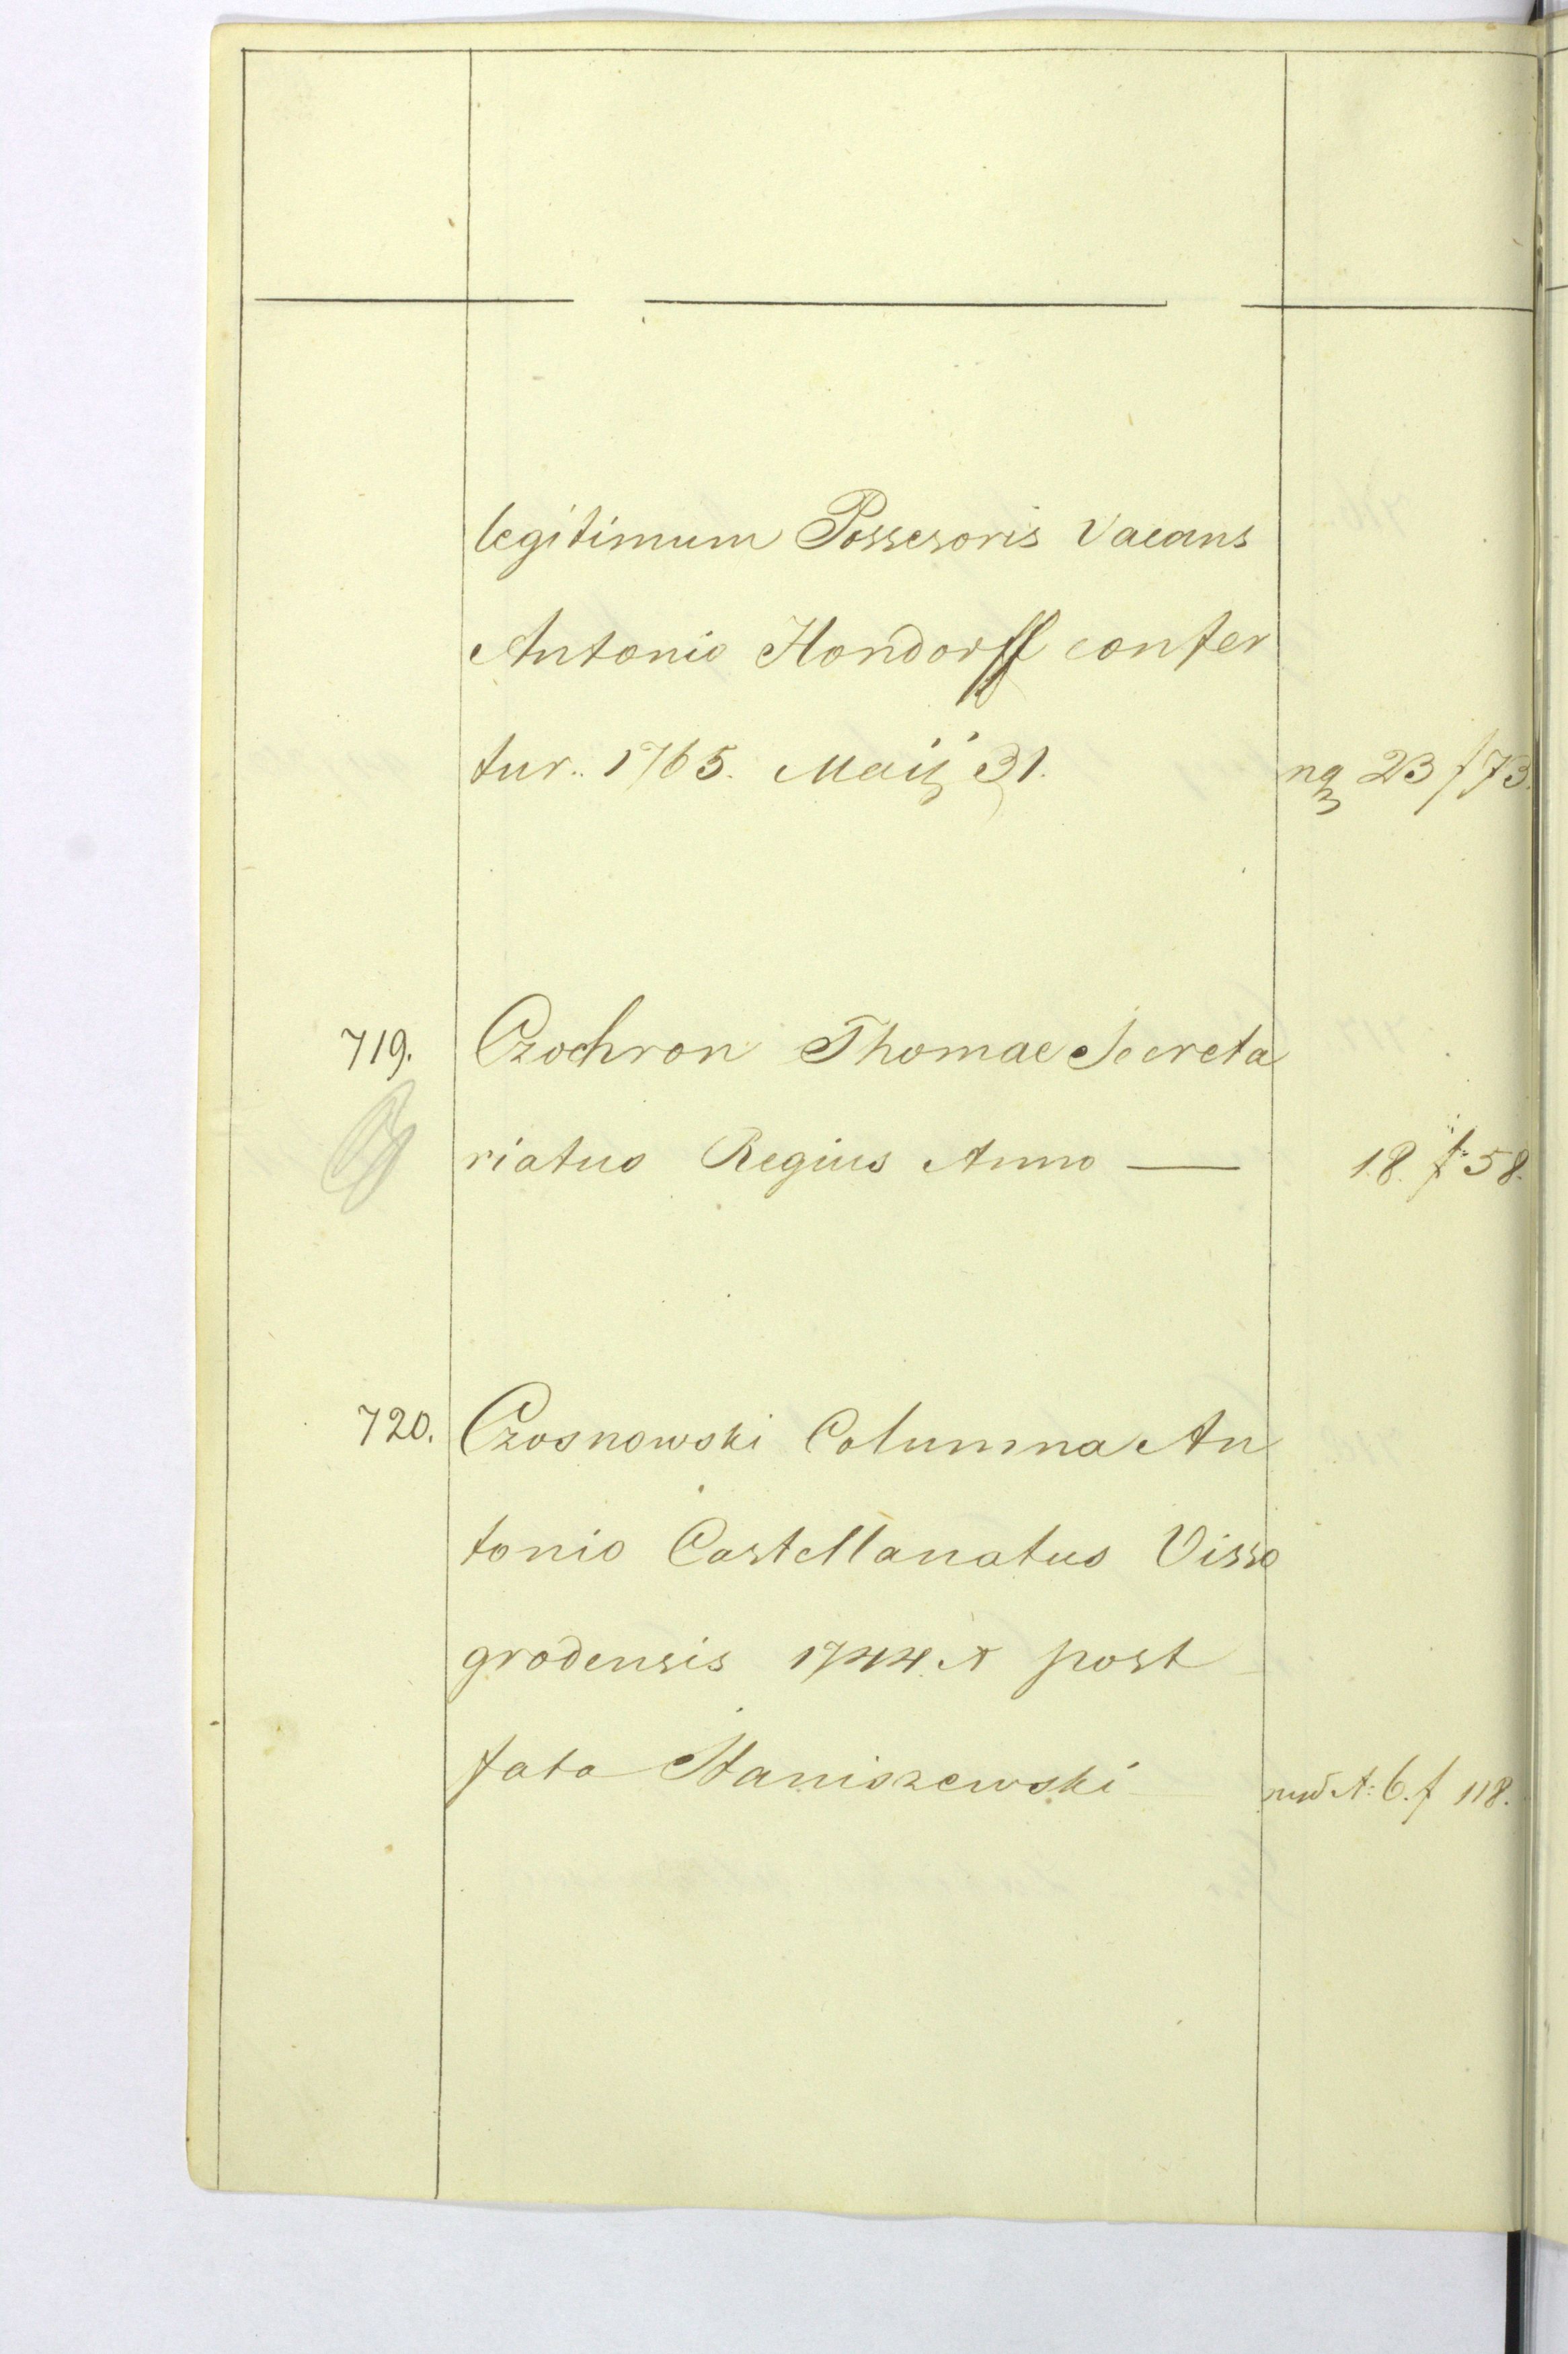 legitimum Possesoris Vacans
Antonio Hondorff confer
tur.. 1765. Maij 31. 23 f 73.
719. Czochron Thomae Secreta
riatus Regius Anno — 18. f: 58.
720. Czosnowski Columna An
tonio Castellanatus Visso
grodensis 1744. A post
fata Staniszewski A: 6. f 118.